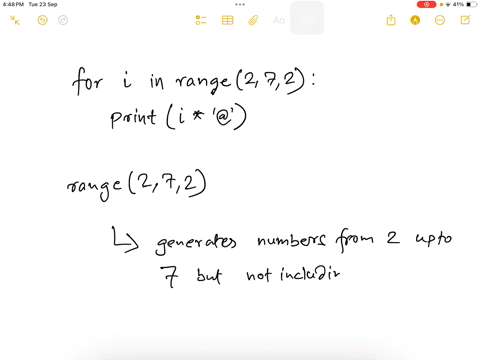 4:48 PM Tue 23 Sep
41%
Aa
for i in range(2,7,2):
print(i * '@')
range(2,7,2)
↳ generates numbers from 2 upto
7 but not includin